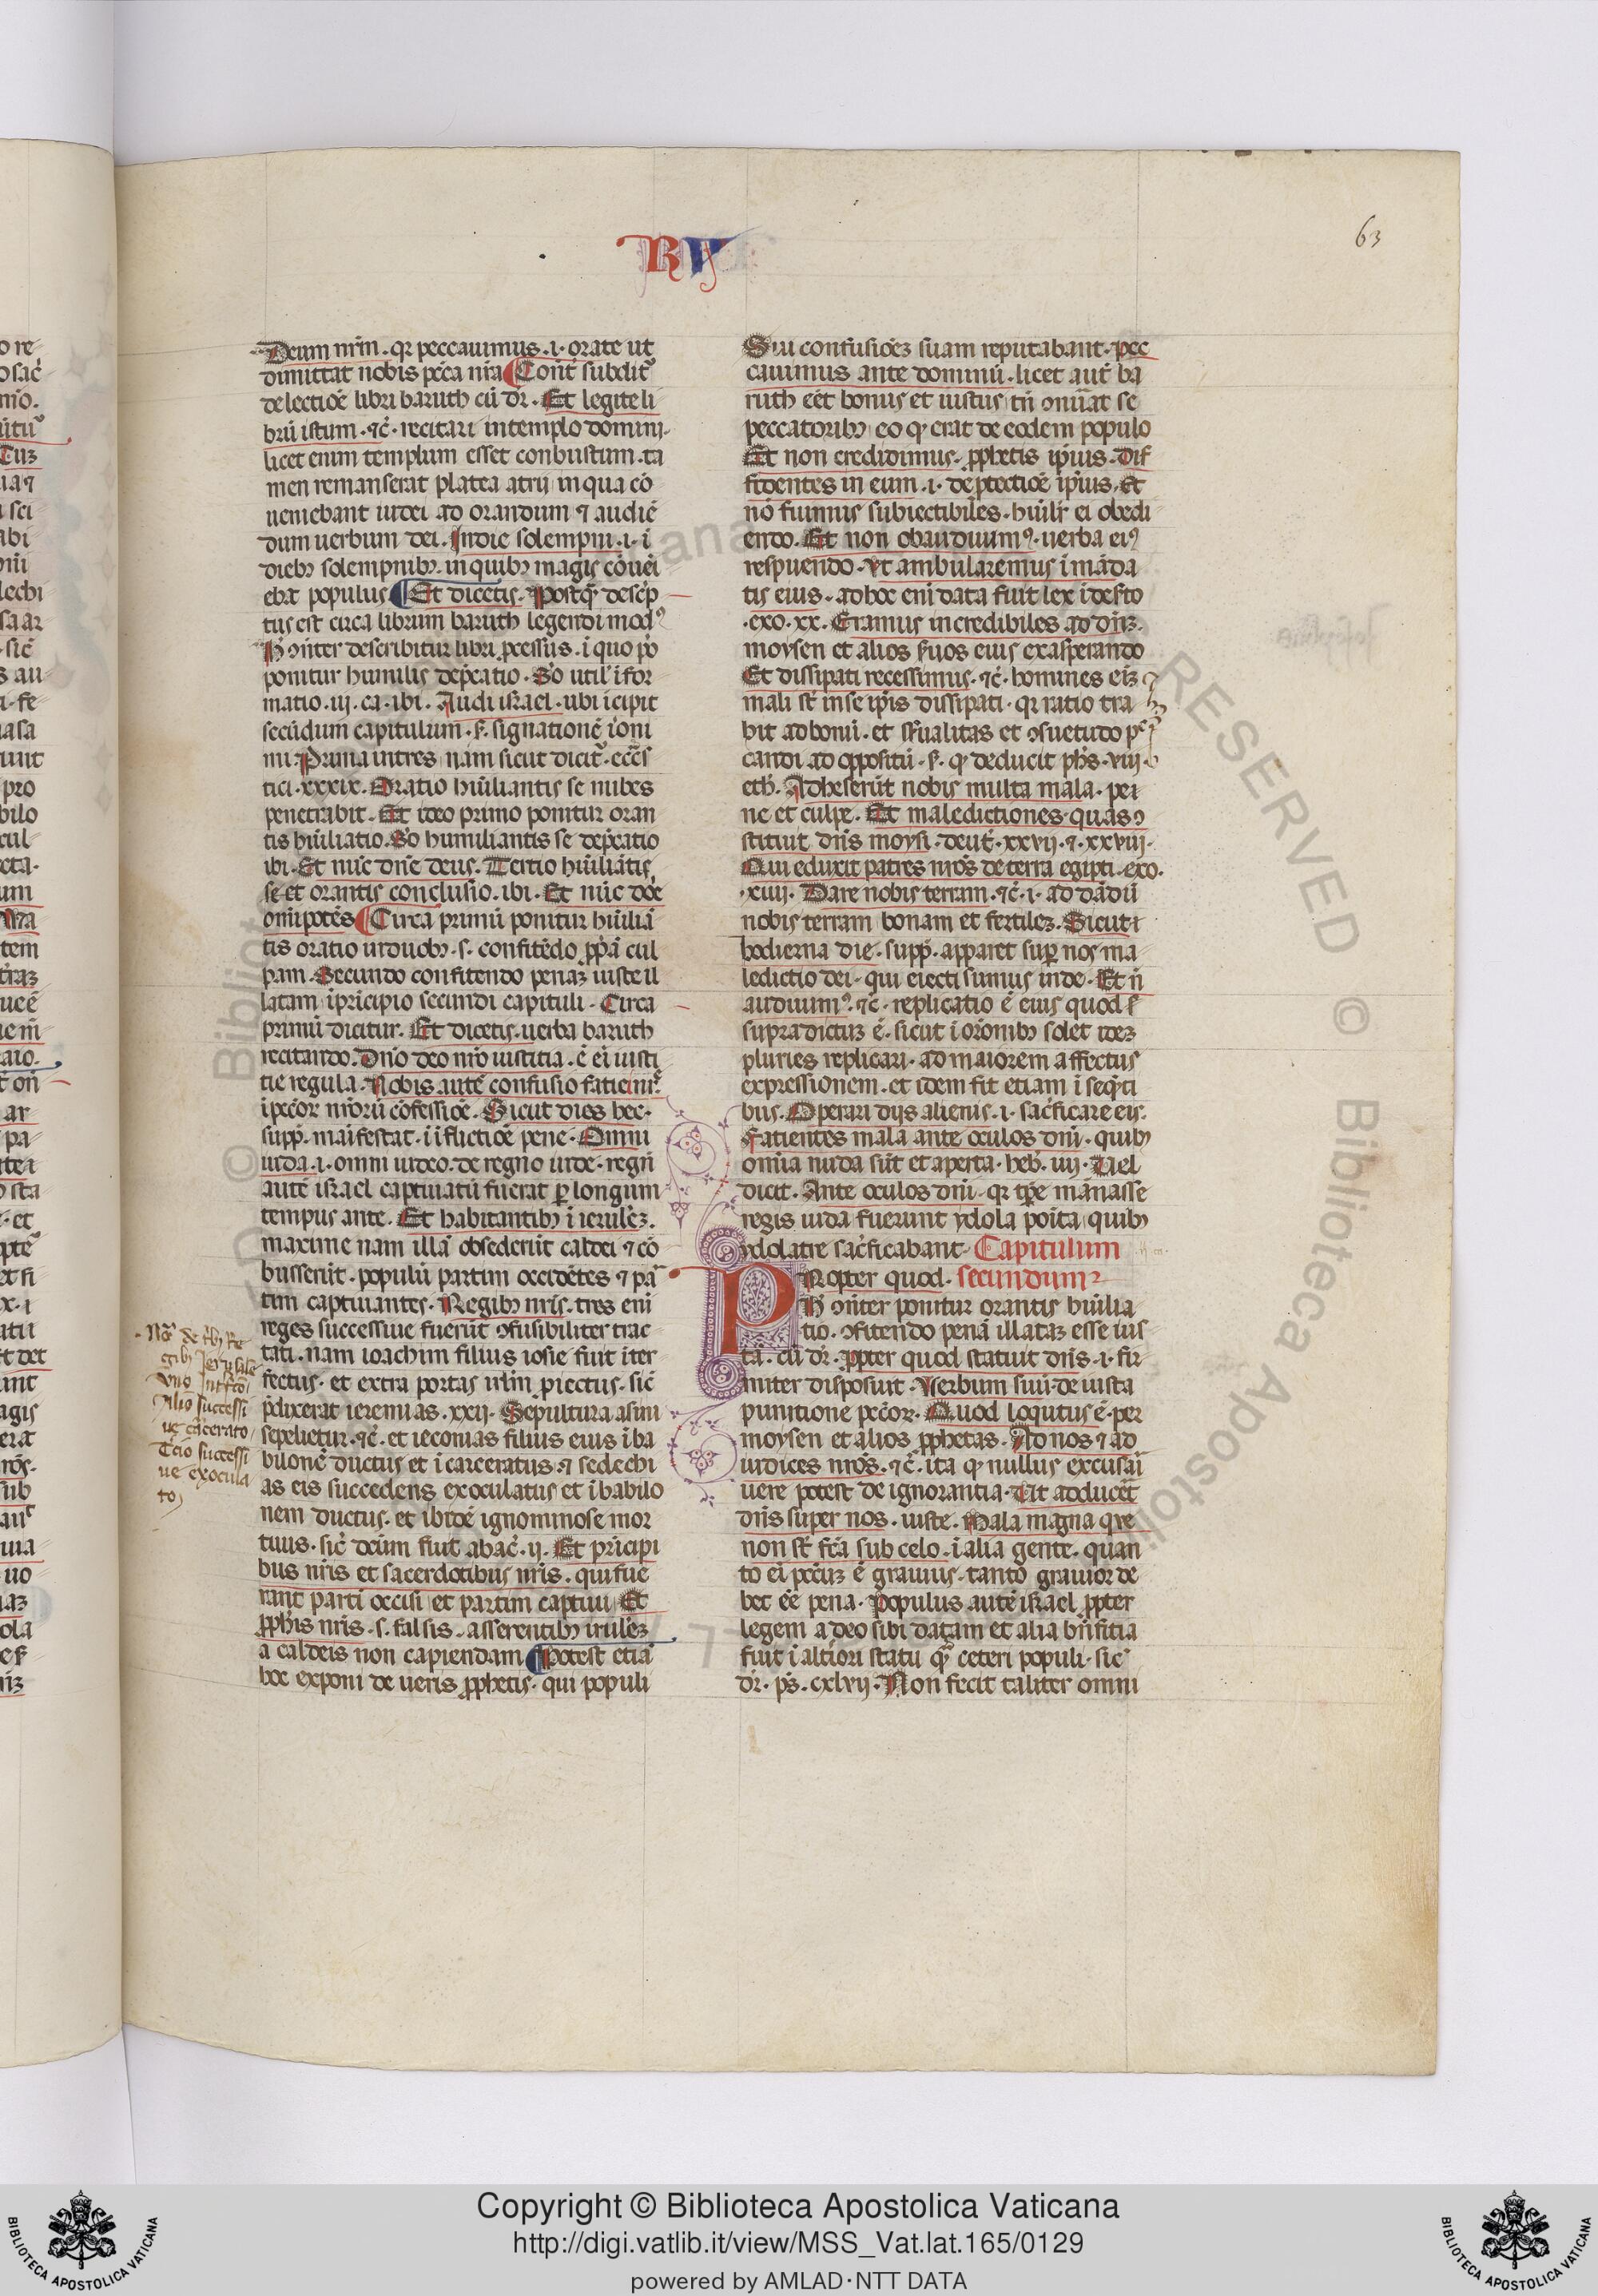 RV
63
Deum nr̄m . qr peccauimus . i . orate ut
dimittat nobis pcc̄a nr̄a ¶ Con̄t subdit᷒
de lectiōe libri baruth cū dr̄ . Et legite li
brū istum . ⁊c̄ . recitari in templo domini .
licet enim templum esset conbustum . ta
men remanserat platea atrij in qua cō
ueniebant iudei ad orandum ⁊ audiē
dum uerbum dei . In die solempni . i . ī
dieb᷒ solempnib᷒ . in quib᷒ magis cōuēi
ebat populus ¶ Et dicetis . Postq̄ desc̄p
tus est circa librum baruth legendi mod᷒
H̄ ɔn̄ter describitur libri p̄cessus . ī quo p̄o
ponitur humilis dep̄catio . S̄o util᷒ īfor
matio . iij . ca . ibi . Audi israel . ubi īcipit
secūdum capitulum . ẜ . signationē iōni
mi . Prima in tres nam sicut dicit᷒ . eccc̄s
tici . xxxix . Oratio hūiliantis se nubes
penetrabit . Et ideo primo ponitur oran
tis hūiliatio . S̄o humiliantis se dep̄catio
ibi . Et nūc dn̄e deus . Tertio hūiliātis
se et orantis conclusio . ibi . Et nūc dn̄e
om̄ipotēs ¶ Circa primū ponitur hūiliā
tis oratio in duob᷒ . s . confitēdo p̄p̄ā cul
pam . Secundo confitendo penaꝫ iuste il
latam ī p̄ncipio secundi capituli . Circa
primū dicitur . Et dicetis . uerba baruth
recitando . Dn̄o deo nr̄o iustitia . ē ei iusti
tie regula . Nobis autē confusio faciei nr̄e
ī pcc̄oꝝ nr̄orū cōfessiōe . Sicut dies hec .
supp̄ . māifestat . ī īflictiōe pene . Omni
iuda . i . omni iudeo . de regno iude . regn̄
autē israel captiuatū fuerat ꝑ longum
tempus ante . Et habitantib᷒ ī ierulꝫ .
maxime nam illā obsederūt caldei ⁊ cō
busserūt . populū partim occidētes ⁊ pa᷒
tim captiuantes . Regib᷒ nr̄is . tres eni
reges successiue fuerūt ɔfusibiliter trac
tati . nam ioachim filius iosie fuit iter
fectus . et extra portas irl̄m p̄iectus . sic̄
p̄dixerat ieremias . xxij . Sepultura asini
sepelietur . ⁊c̄ . et ieconias filius eius ī ba
bilonē ductus et ī carceratus . ⁊ sedechi
as eis succedens exoculatus et ī babilo
nem ductus . et ibidē ignominose mor
tuus . sic̄ dc̄ūm fiut abac̄ . ij . Et p̄ricipi
bus nr̄is et sacerdotibus nr̄is . qui fue
runt parti occisi et partim captiui . Et
p̄ph̄is nr̄is . s . falsis . asserentib᷒ irulꝫ
a caldeis non capiendam ¶ Potest etiā
hoc exponi de ueris p̄phetis . qui populi
Nō de trib᷒ Re
gib᷒ Jerusale
vno Int̄fc̄o
Alio successi
ue c̄carcerato
Tc̄io successi
ue exocula
to
Sui confusiōeꝫ suam reputabant . pec
cauimus ante dominū . licet aūt ba
ruth eēt bonus et iustus tn̄ ɔnūat se
peccatorib᷒ eo qꝫ erat de eodem populo
Et non credidimus . p̄phetis ip̄ius . Dif
fidentes in eum . i . de p̄tectiōe ip̄ius . Et
nō fuimus subiectibiles . hūilr̄ ei obedi
endo . Et non obaudiuim᷒ . uerba ei᷒
respuendo . Vt ambularemus ī māda
tis eius . ad hoc eni data fuit lex ī desto
. exo . xx . Eramus incredibiles ad dn̄ꝫ .
moysen et alios ẜuos eius exasperando
Et dissipati recessimus . ⁊c̄ . homines eīꝫ
mali st̄ in se ip̄is dissipati . qr ratio tra
hit ad bonū . et sn̄sualitas et ɔsuetudo pec
candi ad oppositū . ẜ . qꝫ deducit ph̄s . viij .
eth . Adheserūt nobis multa mala . pei
ne et culpe . Et maledictiones quas ɔ
stituit dn̄s moysi . deut̄ . xxvij . ⁊ . xxviij .
Qui eduxit patres nr̄os de terra egipti . exo .
. xiiij . Dare nobis terram . ⁊c̄ . i . ad dādū
nobis terram bonam et fertileꝫ . Sicut ī
hodierna die . supp̄ . apparet suꝑ nos ma
ledictio dei . qui eiecti sumus inde . Et n̄
audiuim᷒ . ⁊c̄ . replicatio ē eius quod ẜ
supradictuꝫ ē . sicut ī or̄onib᷒ solet ideꝫ
pluries replicari . ad maiorem affectus
expressionem . et idem fit etiam ī seq̄nti
bus . Operari dijs alienis . i . sac̄ficare eis .
Facientes mala ante oculos dn̄i . quib᷒
om̄ia nuda sūt et aperta . heb̄ . iiij . Uel
dicit . Ante oculos dn̄i . qr tꝑe manasse
regis iuda fuerunt ydola poita quib᷒
ydolatre sac̄ficabant . Capitulum
PRopter quod . secundum
H̄ ɔn̄ter ponitur orantis hūilia
tio . ɔfitendo penā illataꝫ esse ius
ta . cū dr̄ . p̄pter quod statuit dn̄s . i . fir
miter disposuit . Verbum suū . de iusta
punitione pcc̄oꝝ . Quod loqutus ē . per
moysen et alios p̄phetas . Ad nos ⁊ ad
iudices nr̄os . ⁊c̄ . ita qꝫ nullus excusaī
uere potest de ignorantia . Ut adducēt
dn̄s super nos . iuste . Mala magna que
non st̄ fc̄a sub celo . ī alia gente . quan
to ei pcc̄ūꝫ ē grauius . tanto grauior de
bet eē pena . Populus autē israel p̄pter
legem a deo sibi datam et alia bn̄fitia
fuit ī altiori statu q̄ ceteri populi . sic̄
dr̄ . ps̄ . cxlvij . Non fecit taliter omni
Copyright © Biblioteca Apostolica Vaticana
http://digi.vatlib.it/view/MSS_Vat.lat.165/0129
powered by AMLAD·NTT DATA
BIBLIOTECA APOSTOLICA VATICANA
BIBLIOTECA APOSTOLICA VATICANA